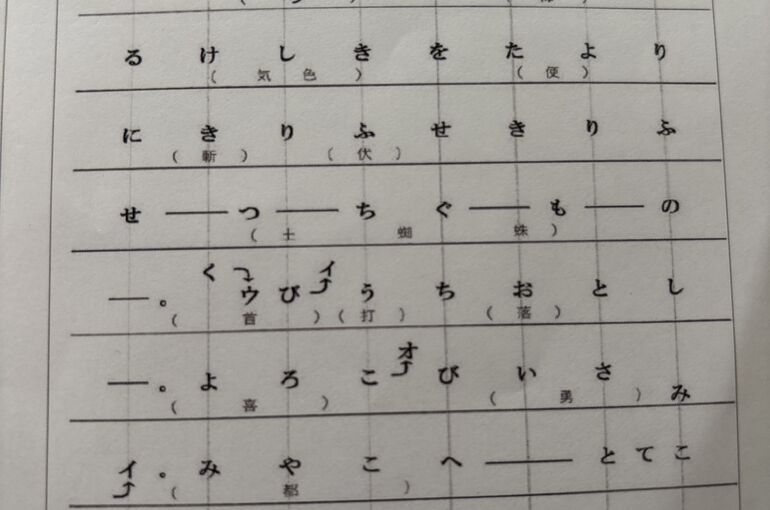 るけしきをたより
(気色) (便)
にきりふせきりふ
(斬) (伏)
せ―つ―ちぐ―も―の
(土蜘蛛)
―。くウびイうちおとし
(首)(打) (落)
―。よろこオびいさみ
(喜) (勇)
イ。みやこへ―とてこ
(都)